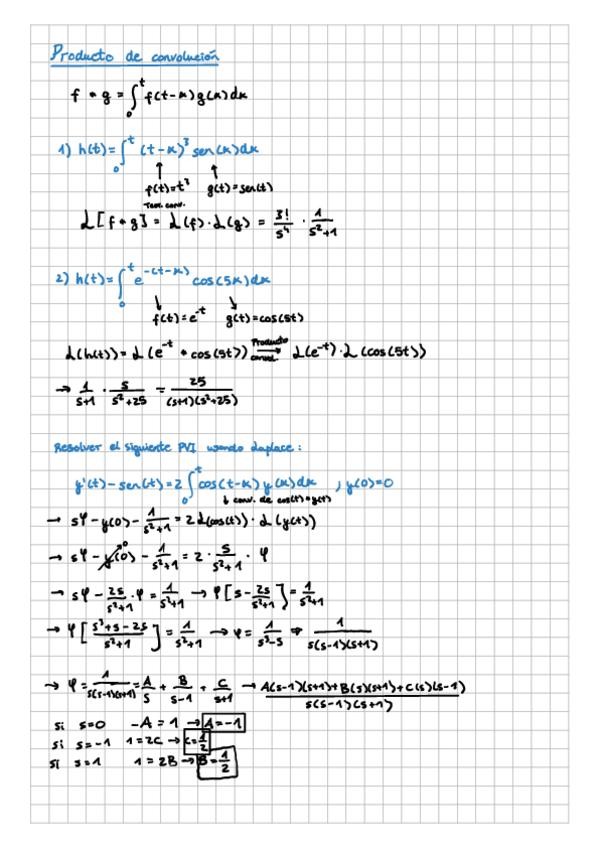 Producto de convolución
f * g = ∫₀ᵗ f(t-x)g(x)dx
1) h(t) = ∫₀ᵗ (t-x)³ sen(x)dx
↑ ↑
f(t)=t³ g(t)=sen(t)
Teor. conv.
ℒ[f * g] = ℒ(f)·ℒ(g) = 3!/s⁴ · 1/(s²+1)
2) h(t) = ∫₀ᵗ e^-(t-x) cos(5x)dx
↓ ↘
f(t)=e^-t g(t)=cos(5t)
ℒ(h(t)) = ℒ(e^-t * cos(5t)) Producto convol. → ℒ(e^-t)·ℒ(cos(5t))
→ 1/(s+1) · 5/(s²+25) = 25/((s+1)(s²+25))
Resolver el siguiente PVI usando Laplace:
y'(t) - sen(t) = 2 ∫₀ᵗ cos(t-x) y(x)dx ; y(0)=0
↓ conv. de cos(t)*y(t)
→ sφ - y(0) - 1/(s²+1) = 2ℒ(cos(t))·ℒ(y(t))
→ sφ - y(0)⁰ - 1/(s²+1) = 2 · s/(s²+1) · φ
→ sφ - 2s/(s²+1) · φ = 1/(s²+1) → φ[s - 2s/(s²+1)] = 1/(s²+1)
→ φ[(s³+s-2s)/(s²+1)] = 1/(s²+1) → φ = 1/(s³-s) → 1/(s(s-1)(s+1))
→ φ = 1/(s(s-1)(s+1)) = A/s + B/(s-1) + C/(s+1) → (A(s-1)(s+1)+B(s)(s+1)+C(s)(s-1))/(s(s-1)(s+1))
si s=0 -A = 1 → A=-1
si s=-1 1=2C → C=1/2
si s=1 1=2B → B=1/2